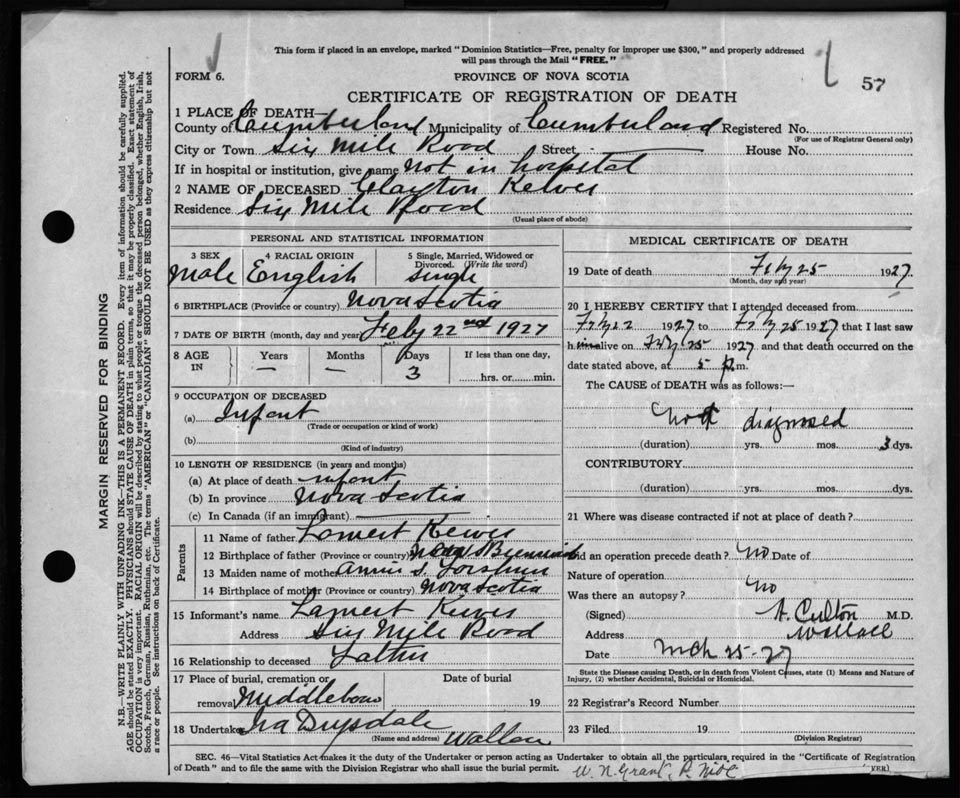 This form if placed in an envelope, marked "Dominion Statistics—Free, penalty for improper use $300," and properly addressed
will pass through the Mail "FREE."
57
FORM 6.
PROVINCE OF NOVA SCOTIA
CERTIFICATE OF REGISTRATION OF DEATH
1 PLACE OF DEATH—
County of Cumberland Municipality of Cumberland Registered No.
(For use of Registrar General only)
City or Town Six Mile Road Street, House No.
If in hospital or institution, give name not in hospital
2 NAME OF DECEASED Clayton
Residence Six Mile Road
(Usual place of abode)
PERSONAL AND STATISTICAL INFORMATION
3 SEX 4 RACIAL ORIGIN 5 Single, Married, Widowed or Divorced. (Write the word)
Male English Single
6 BIRTHPLACE (Province or country) Nova Scotia
7 DATE OF BIRTH (month, day and year) Feby 22nd 1927
8 AGE IN Years Months Days If less than one day,
— — 3 hrs. or min.
9 OCCUPATION OF DECEASED
(a) Infant
(Trade or occupation or kind of work)
(b)
(Kind of industry)
10 LENGTH OF RESIDENCE (in years and months)
(a) At place of death infant
(b) In province Nova Scotia
(c) In Canada (if an immigrant)
Parents
11 Name of father
12 Birthplace of father (Province or country)
13 Maiden name of mother Annie S.
14 Birthplace of mother (Province or country) Nova Scotia
15 Informant's name
Address Six Mile Road
16 Relationship to deceased Father
17 Place of burial, cremation or removal Date of burial
19
18 Undertaker Ira Drysdale
(Name and address) Wallace
MEDICAL CERTIFICATE OF DEATH
19 Date of death Feby 25 1927
(Month, day and year)
20 I HEREBY CERTIFY that I attended deceased from
Feby 22 1927 to Feby 25 1927 that I last saw
him alive on Feby 25 1927 and that death occurred on the
date stated above, at 5 p.m.
The CAUSE of DEATH was as follows:—
Not diagnosed
(duration) yrs. mos. 3 dys.
CONTRIBUTORY
(duration) yrs. mos. dys.
21 Where was disease contracted if not at place of death?
Did an operation precede death? No Date of
Nature of operation
Was there an autopsy? No
(Signed) M.D.
Address Wallace
Date Mch 25-27
State the Disease causing Death, or in death from Violent Causes, state (1) Means and Nature of
Injury, (2) whether Accidental, Suicidal or Homicidal.
22 Registrar's Record Number
23 Filed 19
(Division Registrar)
SEC. 46—Vital Statistics Act makes it the duty of the Undertaker or person acting as Undertaker to obtain all the particulars required in the "Certificate of Registration
of Death" and to file the same with the Division Registrar who shall issue the burial permit.
W. N. Grant
MARGIN RESERVED FOR BINDING
N.B.—WRITE PLAINLY WITH UNFADING INK—THIS IS A PERMANENT RECORD. Every item of information should be carefully supplied.
AGE should be stated EXACTLY. PHYSICIANS should STATE CAUSE OF DEATH in plain terms, so that it may be properly classified. Exact statement of
OCCUPATION is very important. RACIAL ORIGIN will be described by stating to what people or tongue the deceased person belonged, whether English, Irish,
Scotch, French, German, Russian, Ruthenian, etc. The terms "AMERICAN" or "CANADIAN" SHOULD NOT BE USED as they express citizenship but not
a race or people. See instructions on back of Certificate.